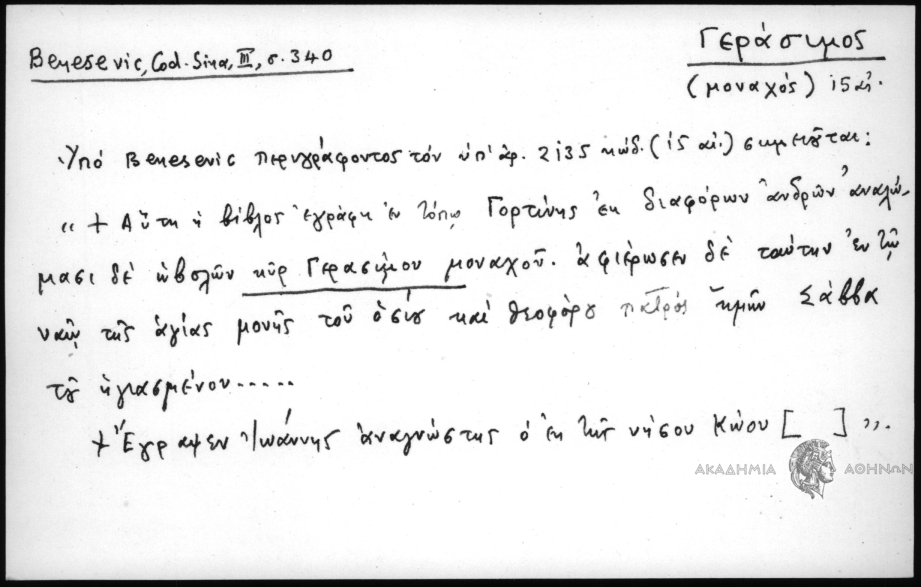 Γεράσιμος
Benesevic, Cod. Sina, III, σ. 340
(μοναχός) 15 αἰ.
Ὑπό Benesevic περιγράφοντος τόν ὑπ' ἀρ. 2135 κώδ. (15 αἰ.) σημειοῦται:
„ + Αὕτη ἡ βίβλος ἐγράφη ἐν τόπῳ Γορτύνης ἐκ διαφόρων ἀνδρῶν ἀναλώ-
μασι δέ ὠβολῶν κῦρ Γερασίμου μοναχοῦ. ἀφιέρωσεν δέ ταύτην ἐν τῷ
ναῷ τῆς ἁγίας μονῆς τοῦ ὁσίου καί θεοφόρου πατρός ἡμῶν Σάββα
τοῦ ἡγιασμένου.....
+ Ἔγραψεν Ἰωάννης ἀναγνώστης ὁ ἐκ τῆς νήσου Κώου [ ] „.
ΑΚΑΔΗΜΙΑ ΑΘΗΝΩΝ